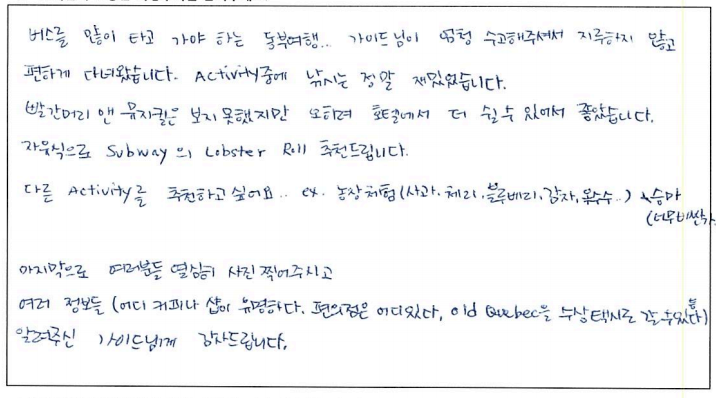 버스를 많이 타고 가야 하는 동부여행... 가이드님이 엄청 수고해주셔서 지루하지 않고
편하게 다녀왔습니다. Activity중에 낚시는 정말 재밌었습니다.
빨간머리 앤 뮤지컬은 보지 못했지만 오히려 호텔에서 더 쉴 수 있어서 좋았습니다.
자유식으로 Subway의 Lobster Roll 추천드립니다.
다른 Activity를 추천하고 싶어요.. ex. 농장체험(사과, 체리, 블루베리, 감자, 옥수수..) 승마
(너무비싼가
마지막으로 여러분들 열심히 사진 찍어주시고
여러 정보들 (어디 커피나 샵이 유명하다. 편의점은 어디있다, old Quebec을 수상택시로 갈 수 있다) 등
알려주신 가이드님께 감사드립니다.